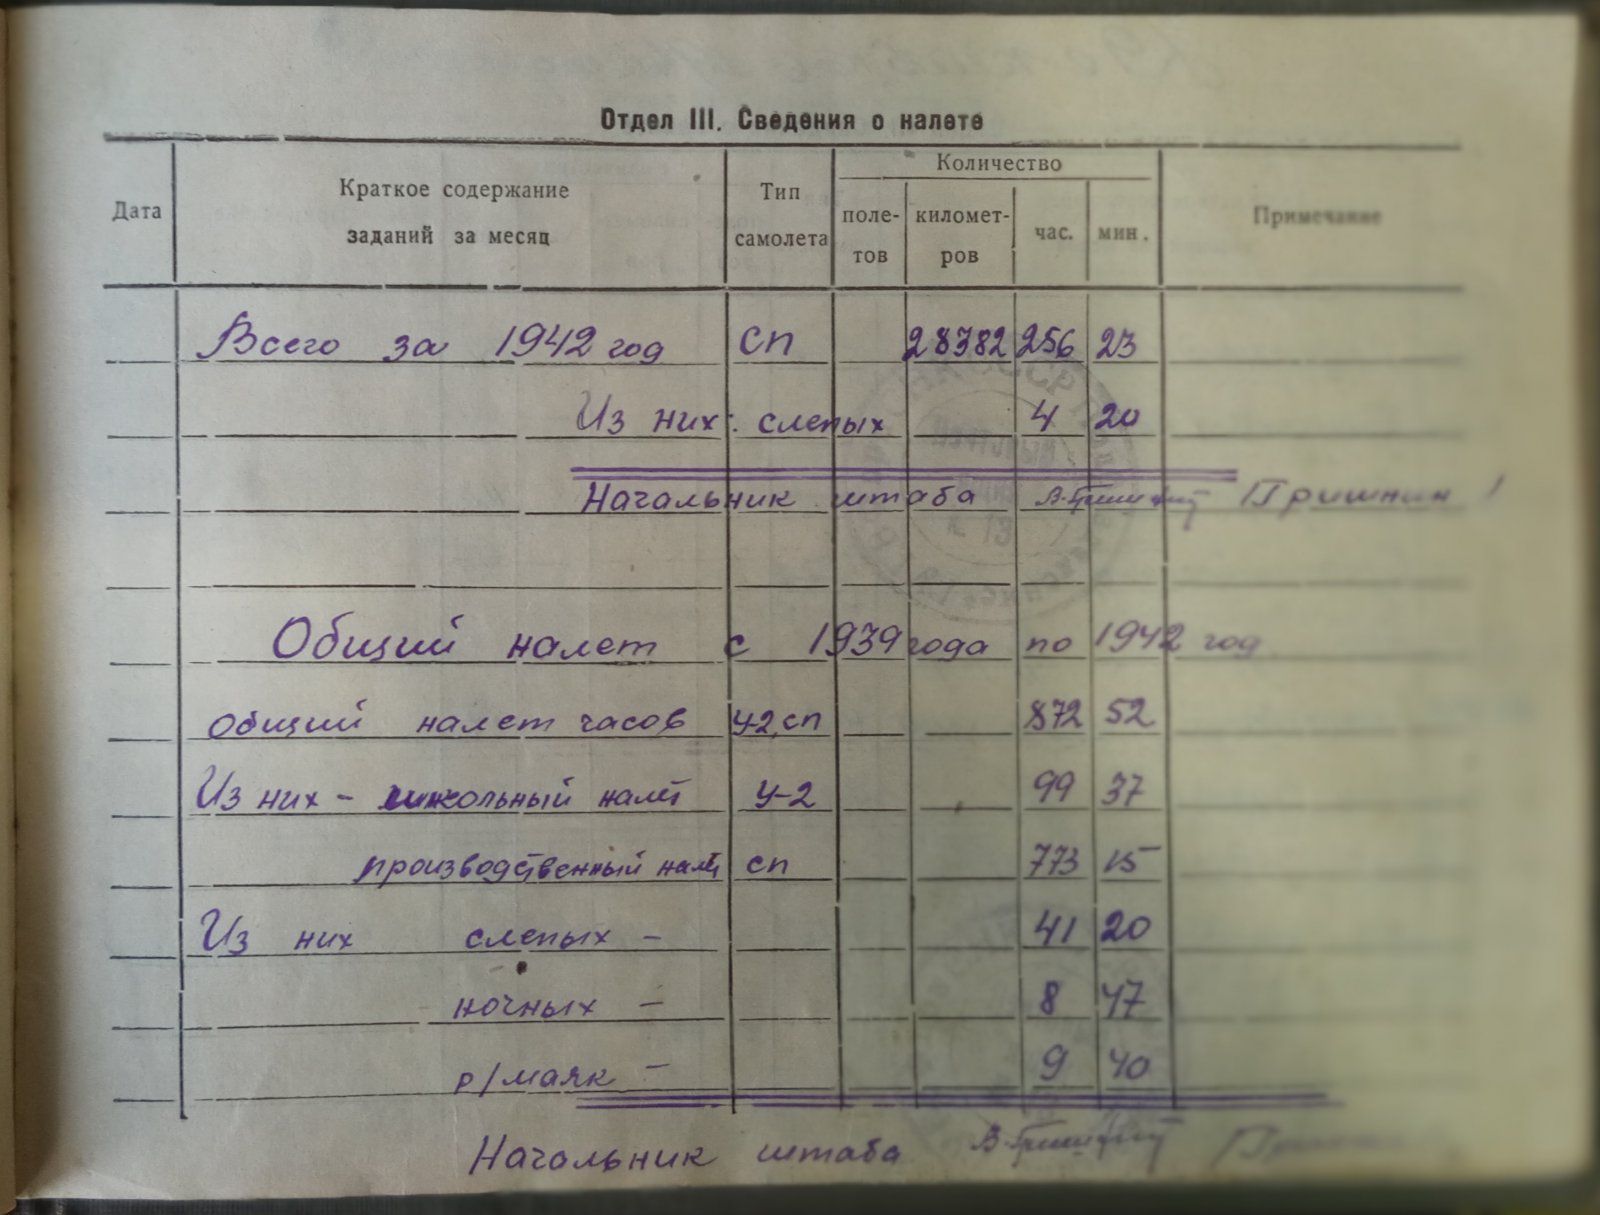 Отдел III. Сведения о налете
Дата
Краткое содержание
заданий за месяц
Тип
самолета
Количество
поле-
тов
километ-
ров
час.
мин.
Примечание
Всего за 1942 год СП 28382 256 23
Из них: слепых 4 20
Начальник штаба /Гришнин/
Общий налет с 1939 года по 1942 год
общий налет часов У-2, сп 872 52
Из них - школьный налёт У-2 99 37
производственный налёт сп 773 15
Из них слепых - 41 20
ночных - 8 47
р/маяк - 9 40
Начальник штаба